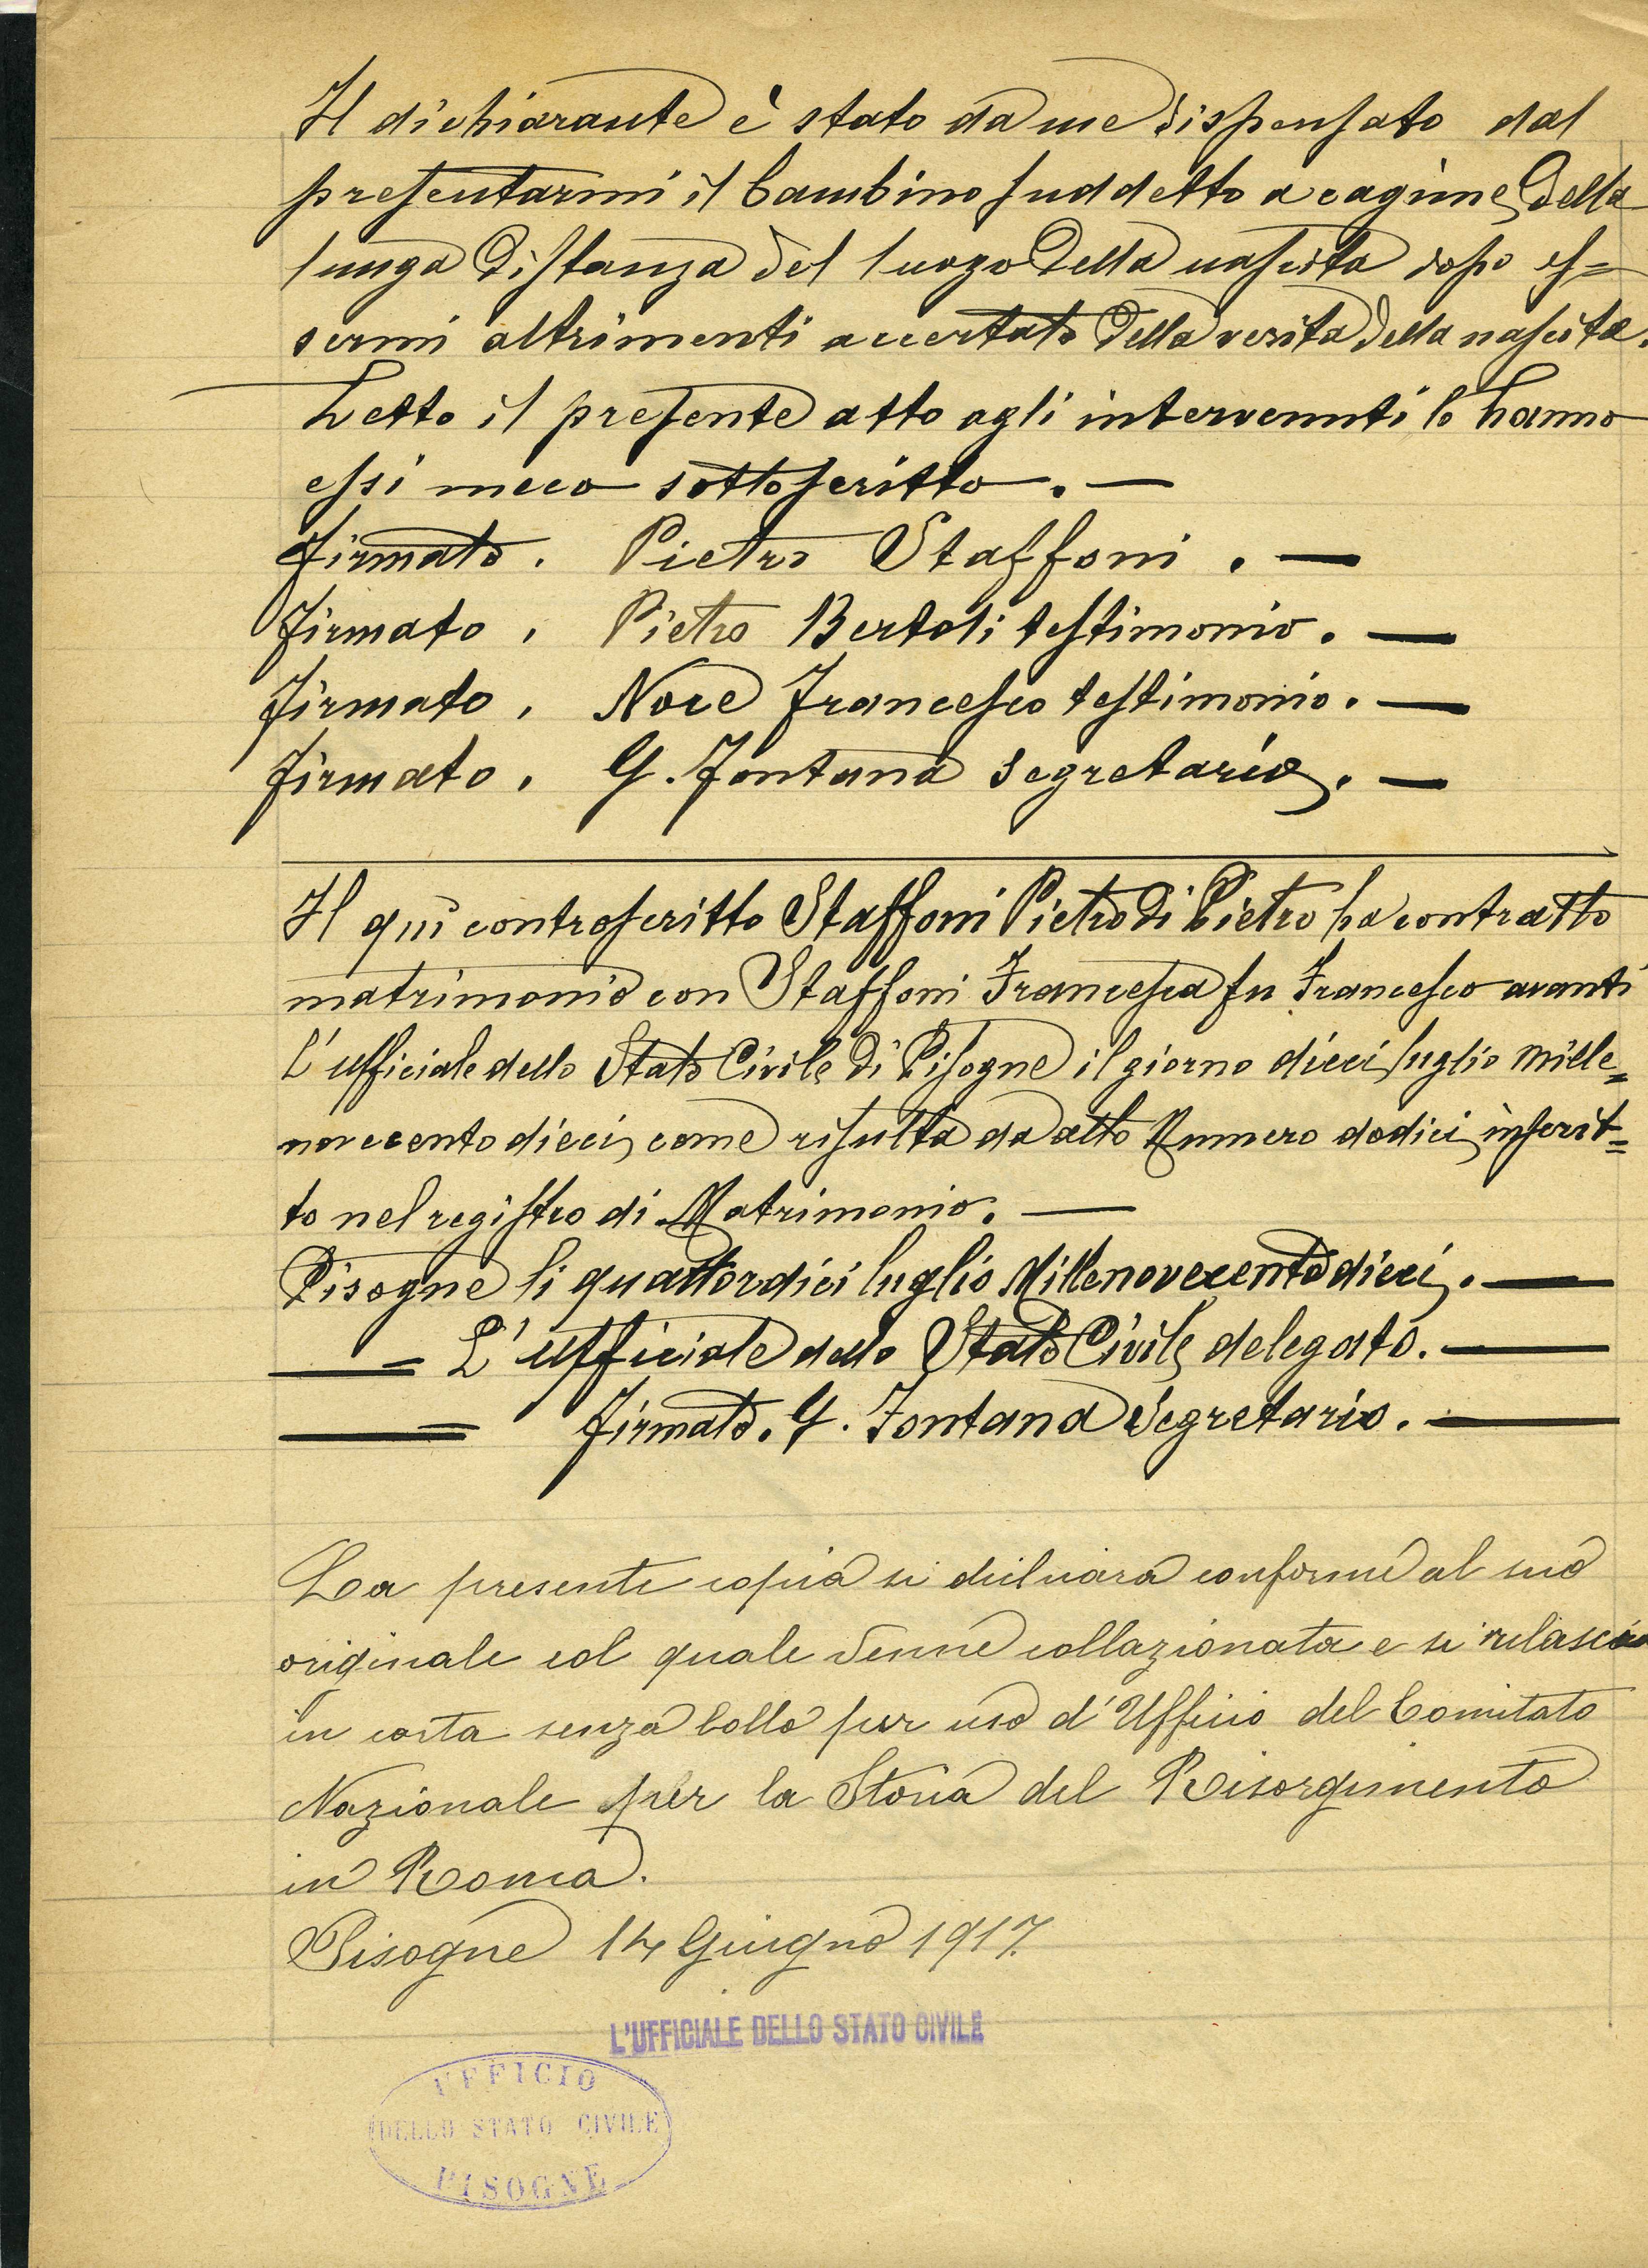 Il dichiarante è stato da me dispensato dal
presentarmi il bambino suddetto a cagione della
lunga distanza del luogo della nascita dopo es=
sermi altrimenti accertato della verità della nascita.
Letto il presente atto agli intervenuti lo hanno
essi meco sottoscritto. —
Firmato. Pietro Staffoni. —
Firmato, Pietro Bertoli testimonio. —
Firmato, Noce Francesco testimonio. —
Firmato, G. Fontana segretario. —
Il quì controscritto Staffoni Pietro di Pietro ha contratto
matrimonio con Staffoni Francesca fu Francesco avanti
L'ufficiale dello Stato Civile di Pisogne il giorno dieci luglio mille=
novecento dieci, come risulta da atto Numero dodici inscrit=
to nel registro di Matrimonio. —
Pisogne li quattordici luglio Millenovecentodieci. —
— = L'ufficiale dello Stato Civile delegato. —
— = Firmato. G. Fontana Segretario. —
La presente copia si dichiara conforme al suo
originale col quale venne collazionata e si rilascia
in carta senza bollo per uso d'Ufficio del Comitato
Nazionale per la Storia del Risorgimento
in Roma.
Pisogne 14 Giugno 1917.
L'UFFICIALE DELLO STATO CIVILE
UFFICIO
DELLO STATO CIVILE
PISOGNE